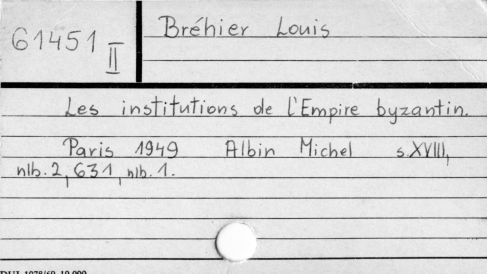 61451 II
Bréhier Louis
Les institutions de l'Empire byzantin.
Paris 1949 Albin Michel s. XVIII,
nlb. 2, 631, nlb. 1.